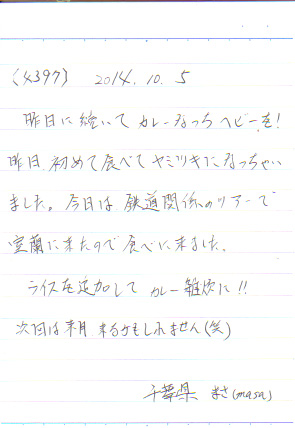 (4397) 2014. 10. 5
昨日に続いて カレーなっち ヘビーを!
昨日、初めて食べて ヤミツキになっちゃい
ました。今日は 鉄道関係のツアーで
室蘭に来たので食べに来ました。
ライスを追加して カレー雑炊に!!
次回は来月 来るかもしれません(笑)
千葉県 まさ(masa)